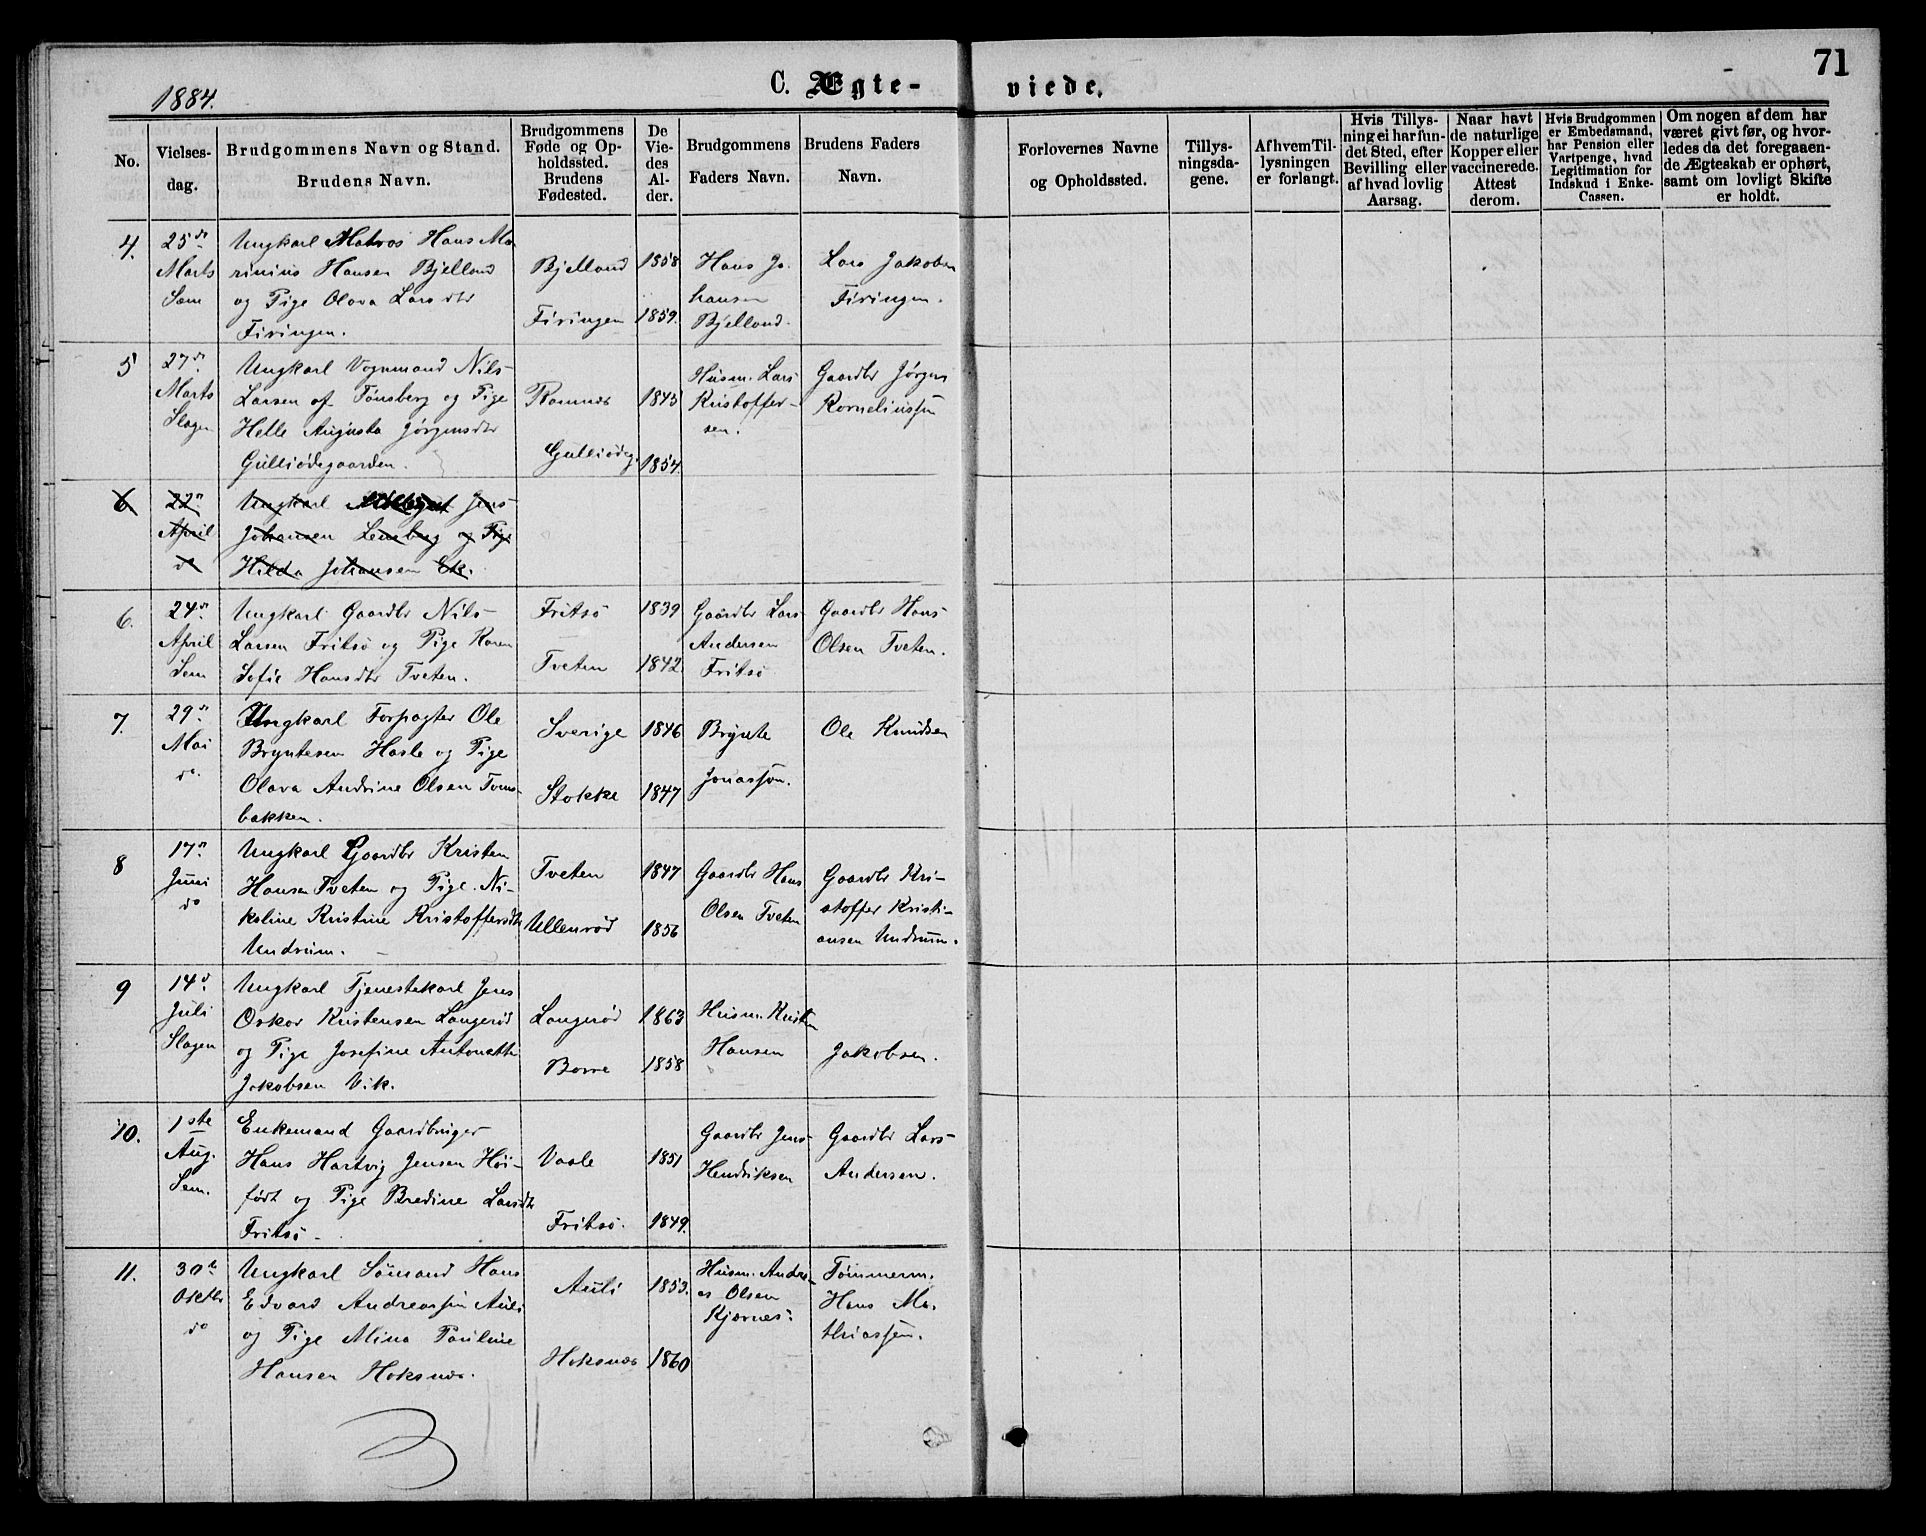 71
1884.
C. Ægte-
viede.
No.
Vielses-
dag.
Brudgommens Navn og Stand.
Brudens Navn.
Brudgommens
Føde og Op-
holdssted.
Brudens
Fødested.
De
Vie-
des
Al-
der.
Brudgommens
Faders Navn.
Brudens Faders
Navn.
Forlovernes Navne
og Opholdssted.
Tillys-
ningsda-
gene.
Af hvem Til-
lysningen
er forlangt.
Hvis Tillys-
ning ei har fun-
det Sted, efter
Bevilling eller
af hvad lovlig
Aarsag.
Naar havt
de naturlige
Kopper eller
vaccinerede.
Attest
derom.
Hvis Brudgommen
er Embedsmand,
har Pension eller
Vartpenge, hvad
Legitimation for
Indskud i Enke-
Cassen.
Om nogen af dem har
været givt før, og hvor-
ledes da det foregaaen-
de Ægteskab er ophørt,
samt om lovligt Skifte
er holdt.
4.
25de
Marts
Sem
Ungkarl Matros Hans Ma-
rinius Hansen Bjelland
og Pige Olava Larsdtr
Firingen.
Bjelland
Firingen
1858
1859.
Hans Jo-
hansen
Bjelland.
Lars Jakobsen
Firingen.
5
27de
Marts
Slagen
Ungkarl Vognmand Nils
Larsen af Tønsberg og Pige
Helle Augusta Jørgensdtr
Gulliödegaarden.
Ramnæs
Gulliödeg.
1843
1854.
Husm. Lars
Kristoffer-
sen.
Gaardbr Jørgen
Kornelinssen
6
22n
April
do
Ungkarl Jens
Johansen Lensberg og Pige
Hilda Johansen Ek.
6.
24de
April
Sem
Ungkarl Gaardbr Nils
Larsen Fritsö og Pige Karen
Sofie Hansdtr Tveten.
Fritsö
Tveten
1839
1842
Gaardbr Lars
Andersen
Fritsö
Gaardbr Hans
Olsen Tveten.
7.
29de
Mai
do.
Ungkarl Forpagter Ole
Bryntesen Hasle og Pige
Olava Andrine Olsen Tvens-
bakken.
Sverige
Stokke
1846
1847
Brynte
Jonassen.
Ole Knudsen
8
17n
Juni
do
Ungkarl Gaardbr Kristen
Hansen Tveten og Pige Ni-
koline Kristine Kristoffersdtr
Undrum.
Tveten
Ullenröd
1847
1856
Gaardbr Hans
Olsen Tveten
Gaardbr Kri-
stoffer Kristi-
ansen Undrum.
9
14d
Juli
Slagen
Ungkarl Tjenestekarl Jens
Oskar Kristensen Langeröd
og Pige Josefine Antonette
Jakobsen Vik.
Langeröd
Borre
1863
1858
Husm. Kristen
Hansen
Jakobsen.
10.
1ste
Aug.
Sem.
Enkemand Gaardbruger
Hans Hartvig Jensen Höi-
födt og Pige Bredine Larsdtr
Fritsö
Vaale
Fritsö.
1851
1849.
Gaardbr Jens
Hendriksen
Gaardbr Lars
Andersen.
11.
30te
Oktbr
do
Ungkarl Sömand Hans
Edvard Andreassen Auli
og Pige Mina Pauline
Hansen Hoksnæs.
Auli
Hoksnæs
1853.
1860
Husm. Andre-
as Olsen
Kjærnes.
Tømmerm.
Hans Ma-
thiassen.